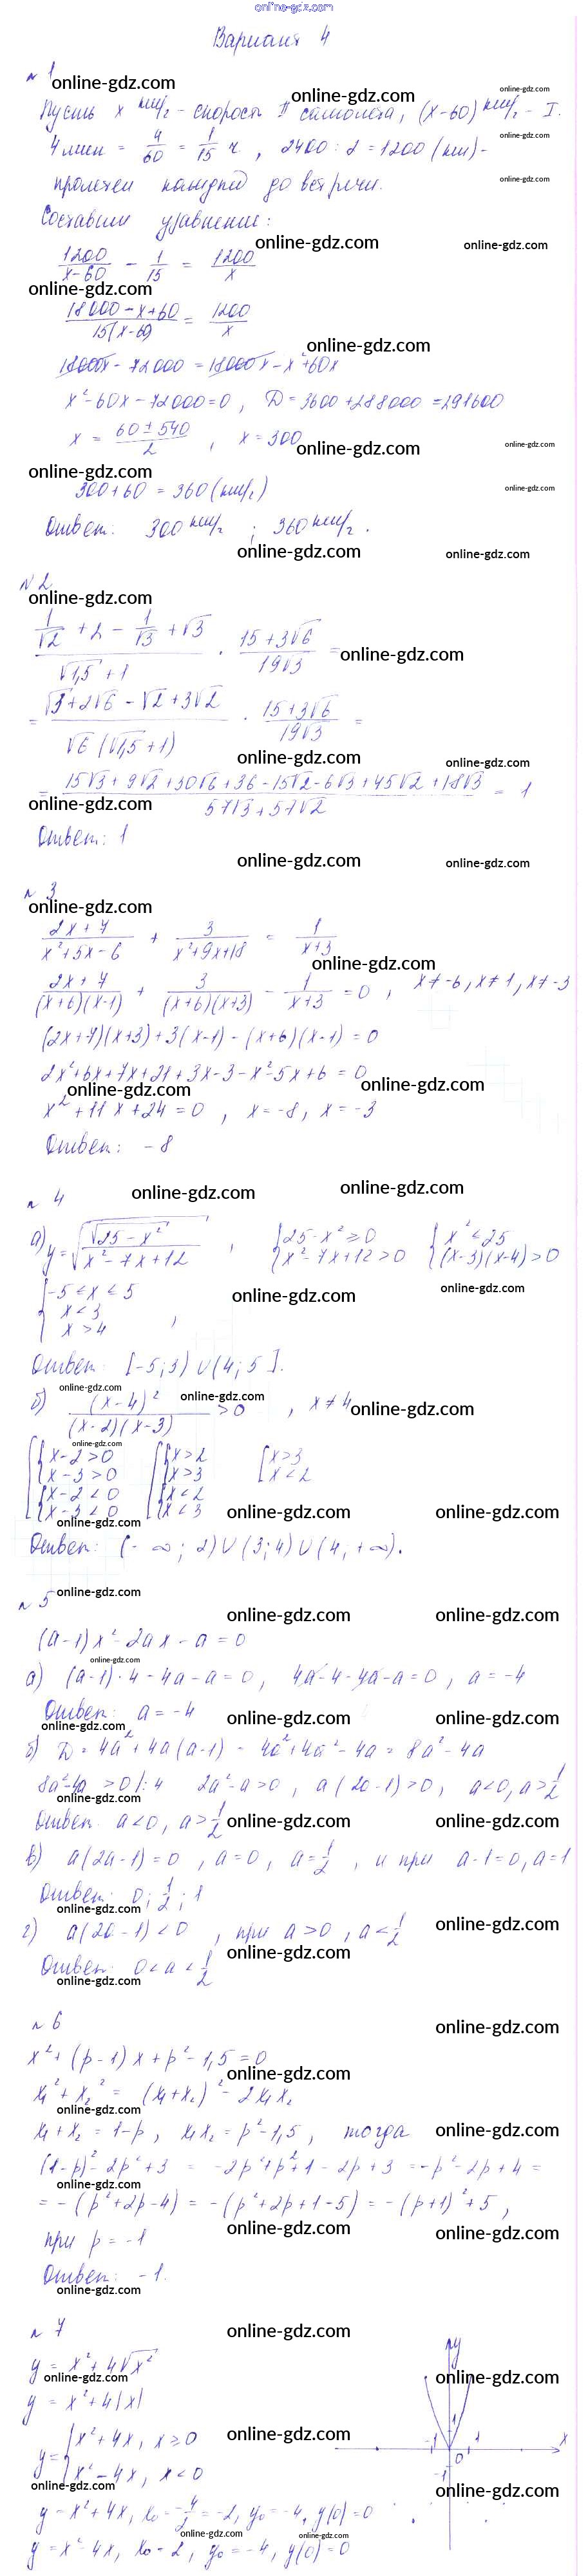 online-gdz.com
Вариант 4
№ 1
Пусть x км/ч - скорость II самолёта, (x-60) км/ч - I.
4 мин = 4/60 = 1/15 ч, 2400 : 2 = 1200 (км) -
пролетел каждый до встречи.
Составим уравнение:
1200/(x-60) - 1/15 = 1200/x
(18000 - x + 60)/(15(x-60)) = 1200/x
18000x - 72000 = 18000x - x² + 60x
x² - 60x - 72000 = 0, D = 3600 + 288000 = 291600
x = (60 ± 540)/2, x = 300
300 + 60 = 360 (км/ч)
Ответ: 300 км/ч; 360 км/ч.
№ 2
(1/√2 + 2 - 1/√3 + √3)/(√1,5 + 1) · (15 + 3√6)/(19√3) =
= (√3 + 2√6 - √2 + 3√2)/(√6(√1,5 + 1)) · (15 + 3√6)/(19√3) =
= (15√3 + 9√2 + 30√6 + 36 - 15√2 - 6√3 + 45√2 + 18√3)/(57√3 + 57√2) = 1
Ответ: 1
№ 3
(2x + 7)/(x² + 5x - 6) + 3/(x² + 9x + 18) = 1/(x + 3)
(2x + 7)/((x+6)(x-1)) + 3/((x+6)(x+3)) - 1/(x+3) = 0, x ≠ -6, x ≠ 1, x ≠ -3
(2x+7)(x+3) + 3(x-1) - (x+6)(x-1) = 0
2x² + 6x + 7x + 21 + 3x - 3 - x² - 5x + 6 = 0
x² + 11x + 24 = 0, x = -8, x = -3
Ответ: -8
№ 4
а) y = √(√(25 - x²)/(x² - 7x + 12)), {25 - x² ≥ 0 {x² ≤ 25
{x² - 7x + 12 > 0 {(x-3)(x-4) > 0
{-5 ≤ x ≤ 5
x < 3
x > 4,
Ответ: [-5; 3) ∪ (4; 5].
б) (x-4)²/((x-2)(x-3)) > 0, x ≠ 4
[{x - 2 > 0 [{x > 2 [x > 3
{x - 3 > 0 {x > 3 [x < 2
{x - 2 < 0 {x < 2
{x - 3 < 0 {x < 3
Ответ: (-∞; 2) ∪ (3; 4) ∪ (4, +∞).
№ 5
(a-1)x² - 2ax - a = 0
а) (a-1)·4 - 4a - a = 0, 4a - 4 - 4a - a = 0, a = -4
Ответ: a = -4
б) D = 4a² + 4a(a-1) = 4a² + 4a² - 4a = 8a² - 4a
8a² - 4a > 0 |: 4 2a² - a > 0, a(2a-1) > 0, a < 0, a > 1/2
Ответ: a < 0, a > 1/2
в) a(2a-1) = 0, a = 0, a = 1/2, и при a - 1 = 0, a = 1
Ответ: 0; 1/2; 1
г) a(2a-1) < 0, при a > 0, a < 1/2
Ответ: 0 < a < 1/2
№ 6
x² + (p-1)x + p² - 1,5 = 0
x₁² + x₂² = (x₁ + x₂)² - 2x₁x₂
x₁ + x₂ = 1 - p, x₁x₂ = p² - 1,5, тогда
(1-p)² - 2p² + 3 = -2p² + p² + 1 - 2p + 3 = -p² - 2p + 4 =
= -(p² + 2p - 4) = -(p² + 2p + 1 - 5) = -(p+1)² + 5,
при p = -1
Ответ: -1.
№ 7
y = x² + 4√x²
y = x² + 4|x|
y = {x² + 4x, x ≥ 0
{x² - 4x, x < 0
y = x² + 4x, x₀ = -4/2 = -2, y₀ = -4, y(0) = 0
y = x² - 4x, x₀ = 2, y₀ = -4, y(0) = 0
y
x
1
-1
0
1
-1